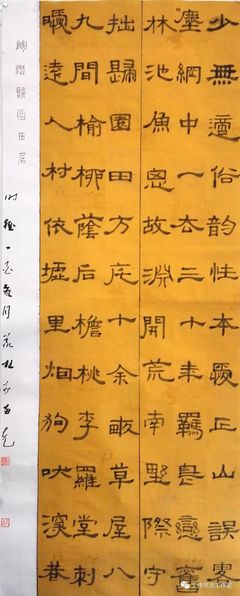 少無適俗韵性本愛丘山誤落
塵網中一去三十年羈鳥戀舊
林池魚思故淵開荒南野際守
拙歸園田方宅十余畝草屋八
九間榆柳蔭后檐桃李羅堂前
曖遠人村依墟里烟狗吠深巷
陶潛歸園田居